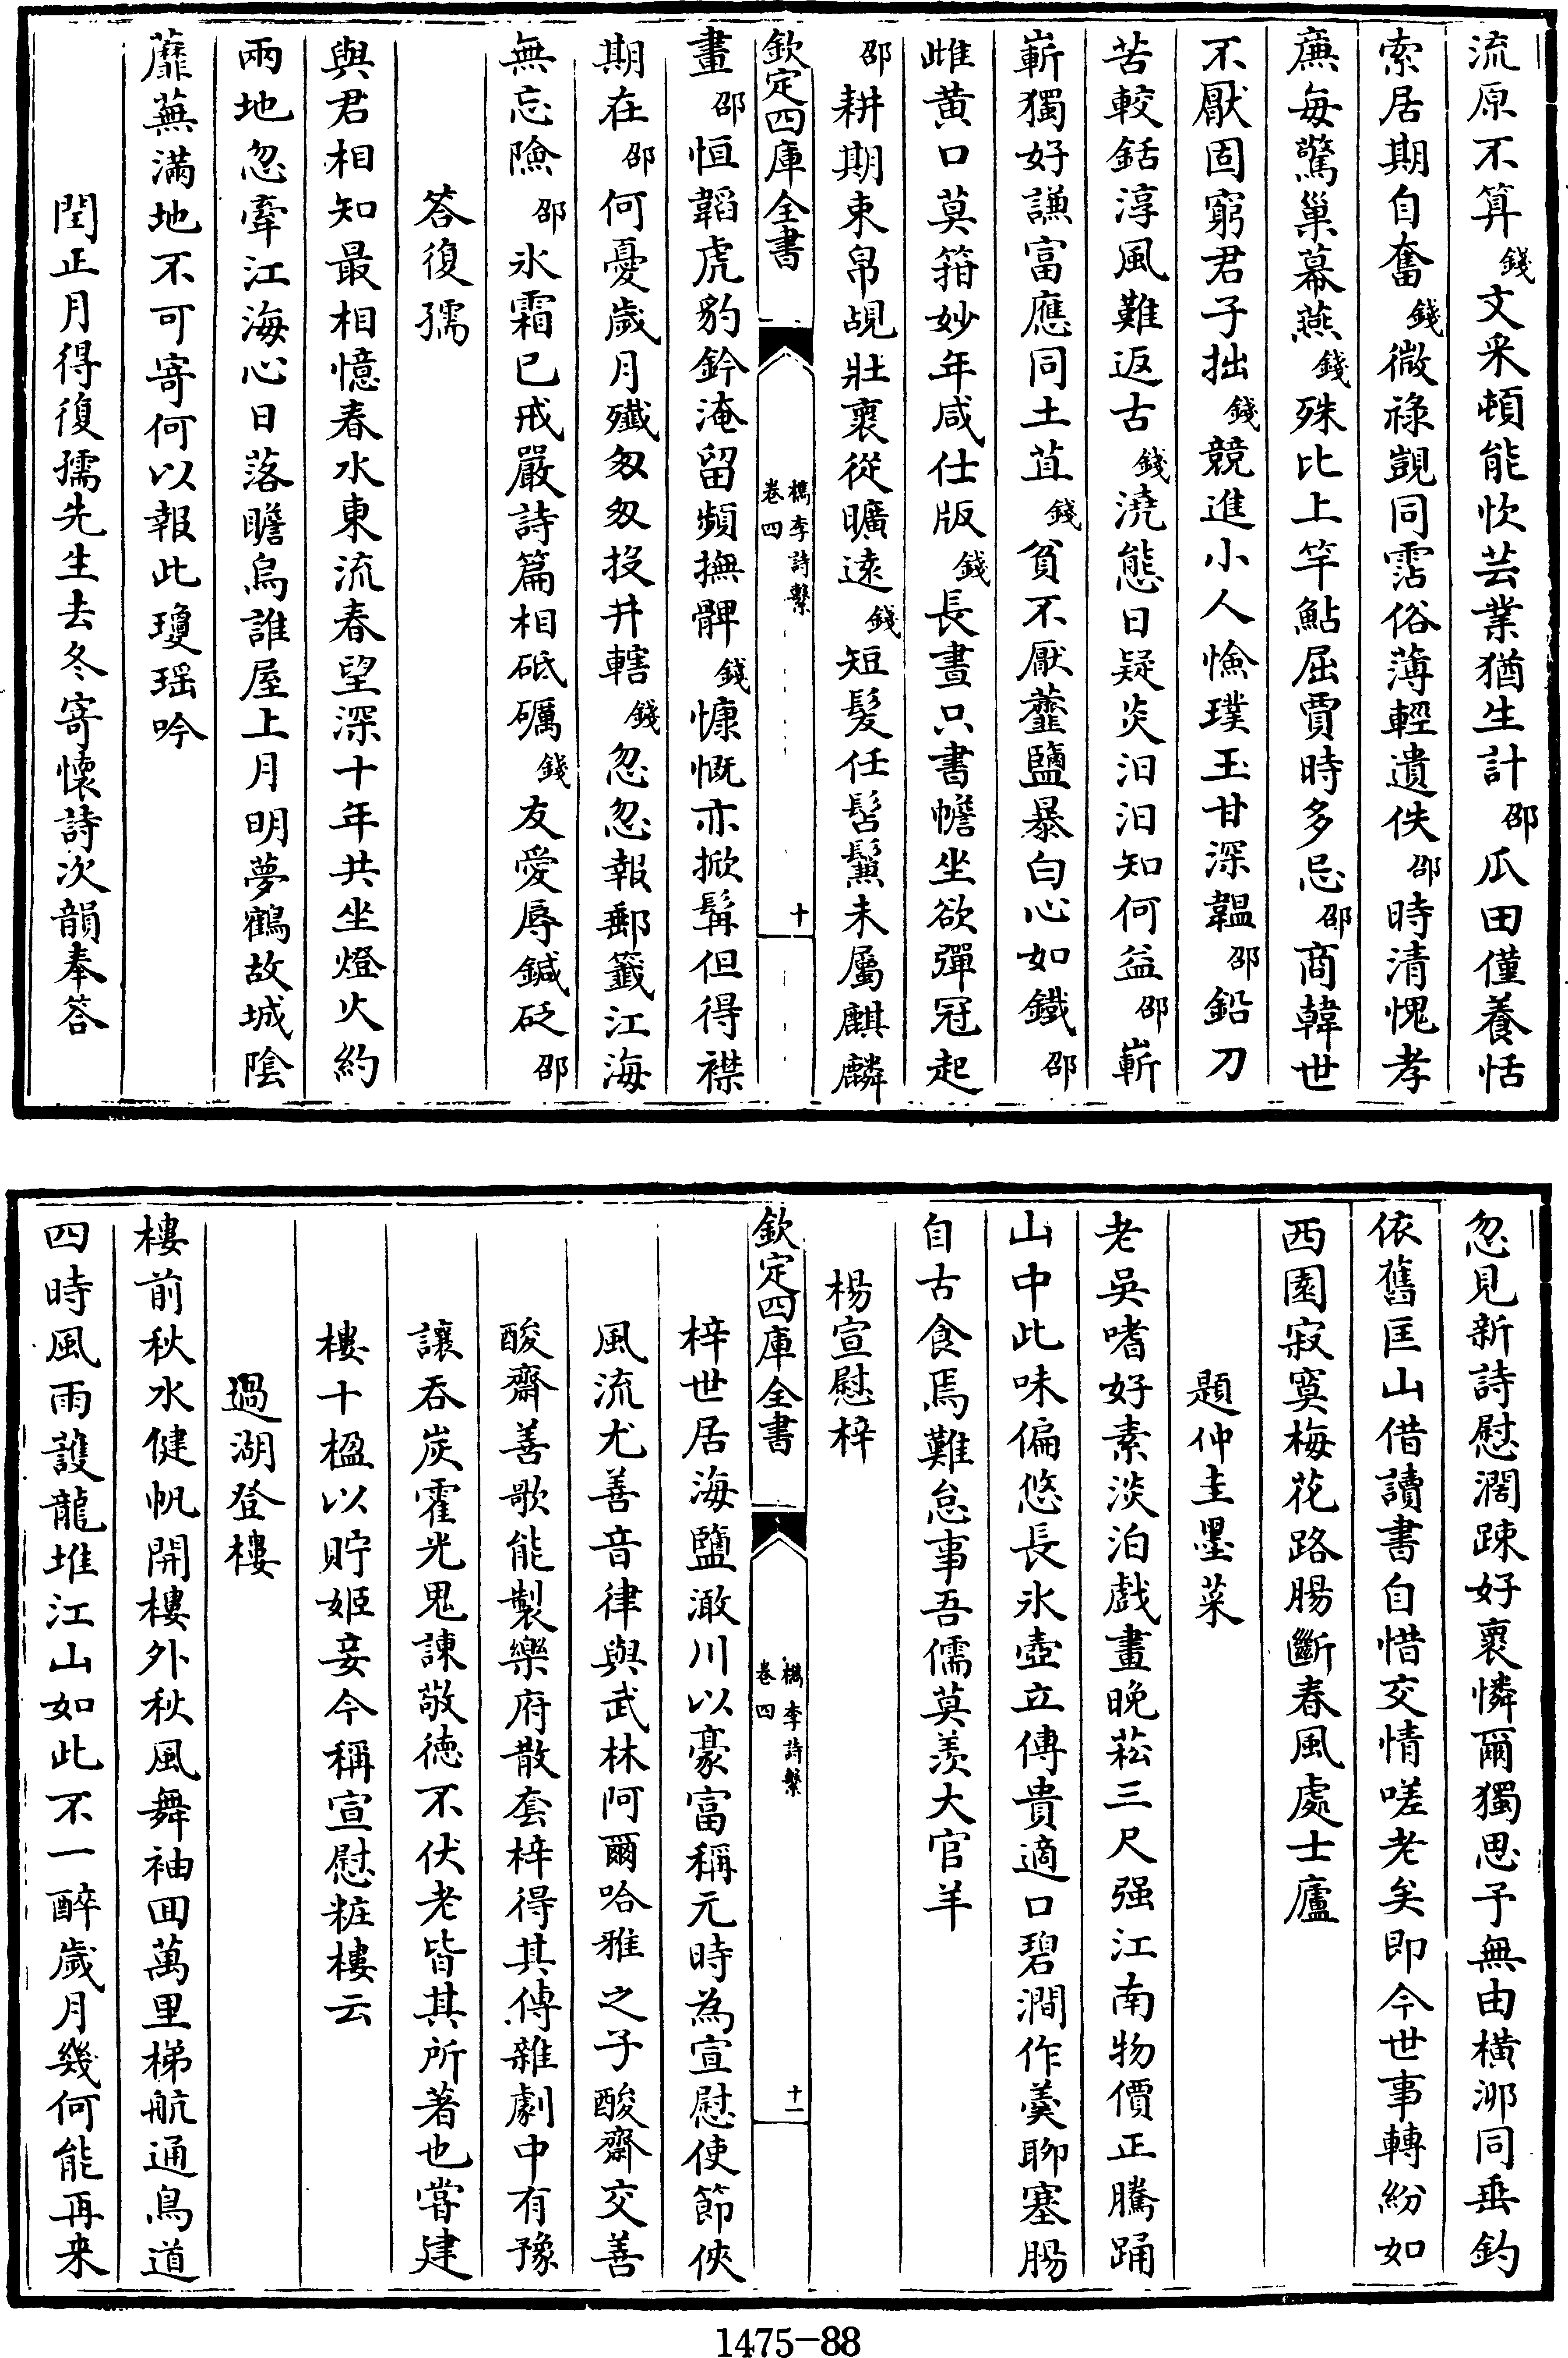 流原不算錢文采頓能忺芸業猶生計邵瓜田僅養恬
索居期自奮錢微祿覬同霑俗薄輕遺佚邵時清愧孝
廉每驚巢幕燕錢殊比上竿鮎屈賈時多忌邵商韓世
不厭固窮君子拙錢競進小人憸璞玉甘深韞邵鉛刀
苦較銛淳風難返古錢澆態日疑炎汨汨知何益邵嶄
嶄獨好謙富應同土苴錢貧不厭虀鹽暴白心如鐵邵
雌黄口莫箝妙年咸仕版錢長晝只書幨坐欲彈冠起
邵耕期束帛覘壯褱從曠遠錢短髮任髫鬑未屬麒麟
欽定四庫全書
檇李詩繫
卷四
十
畫邵恒韜虎豹鈐淹留頻撫髀錢慷慨亦掀髯但得襟
期在邵何憂歲月殲匆匆投井轄錢忽忽報郵籤江海
無忘險邵氷霜已戒嚴詩篇相砥礪錢友愛辱鍼砭邵
答復孺
與君相知最相憶春水東流春望深十年共坐燈火約
兩地忽牽江海心日落瞻烏誰屋上月明夢鶴故城陰
蘼蕪滿地不可寄何以報此瓊瑶吟
閏正月得復孺先生去冬寄懷詩次韻奉答
忽見新詩慰濶踈好褱憐爾獨思予無由横泖同垂釣
依舊匡山借讀書自惜交情嗟老矣即今世事轉紛如
西園寂寞梅花路腸斷春風處士廬
題仲圭墨菜
老吳嗜好素淡泊戲畫晚菘三尺强江南物價正騰踊
山中此味偏悠長氷壺立傳貴適口碧澗作羮聊塞腸
自古食焉難怠事吾儒莫羡大官羊
楊宣慰梓
欽定四庫全書
檇李詩繫
卷四
十一
梓世居海鹽澉川以豪富稱元時為宣慰使節俠
風流尤善音律與武林阿爾哈雅之子酸齋交善
酸齋善歌能製樂府散套梓得其傳雜劇中有豫
讓吞炭霍光鬼諫敬德不伏老皆其所著也嘗建
樓十楹以貯姬妾今稱宣慰粧樓云
過湖登樓
樓前秋水健帆開樓外秋風舞袖囬萬里梯航通鳥道
四時風雨護龍堆江山如此不一醉歲月幾何能再来
1475-88